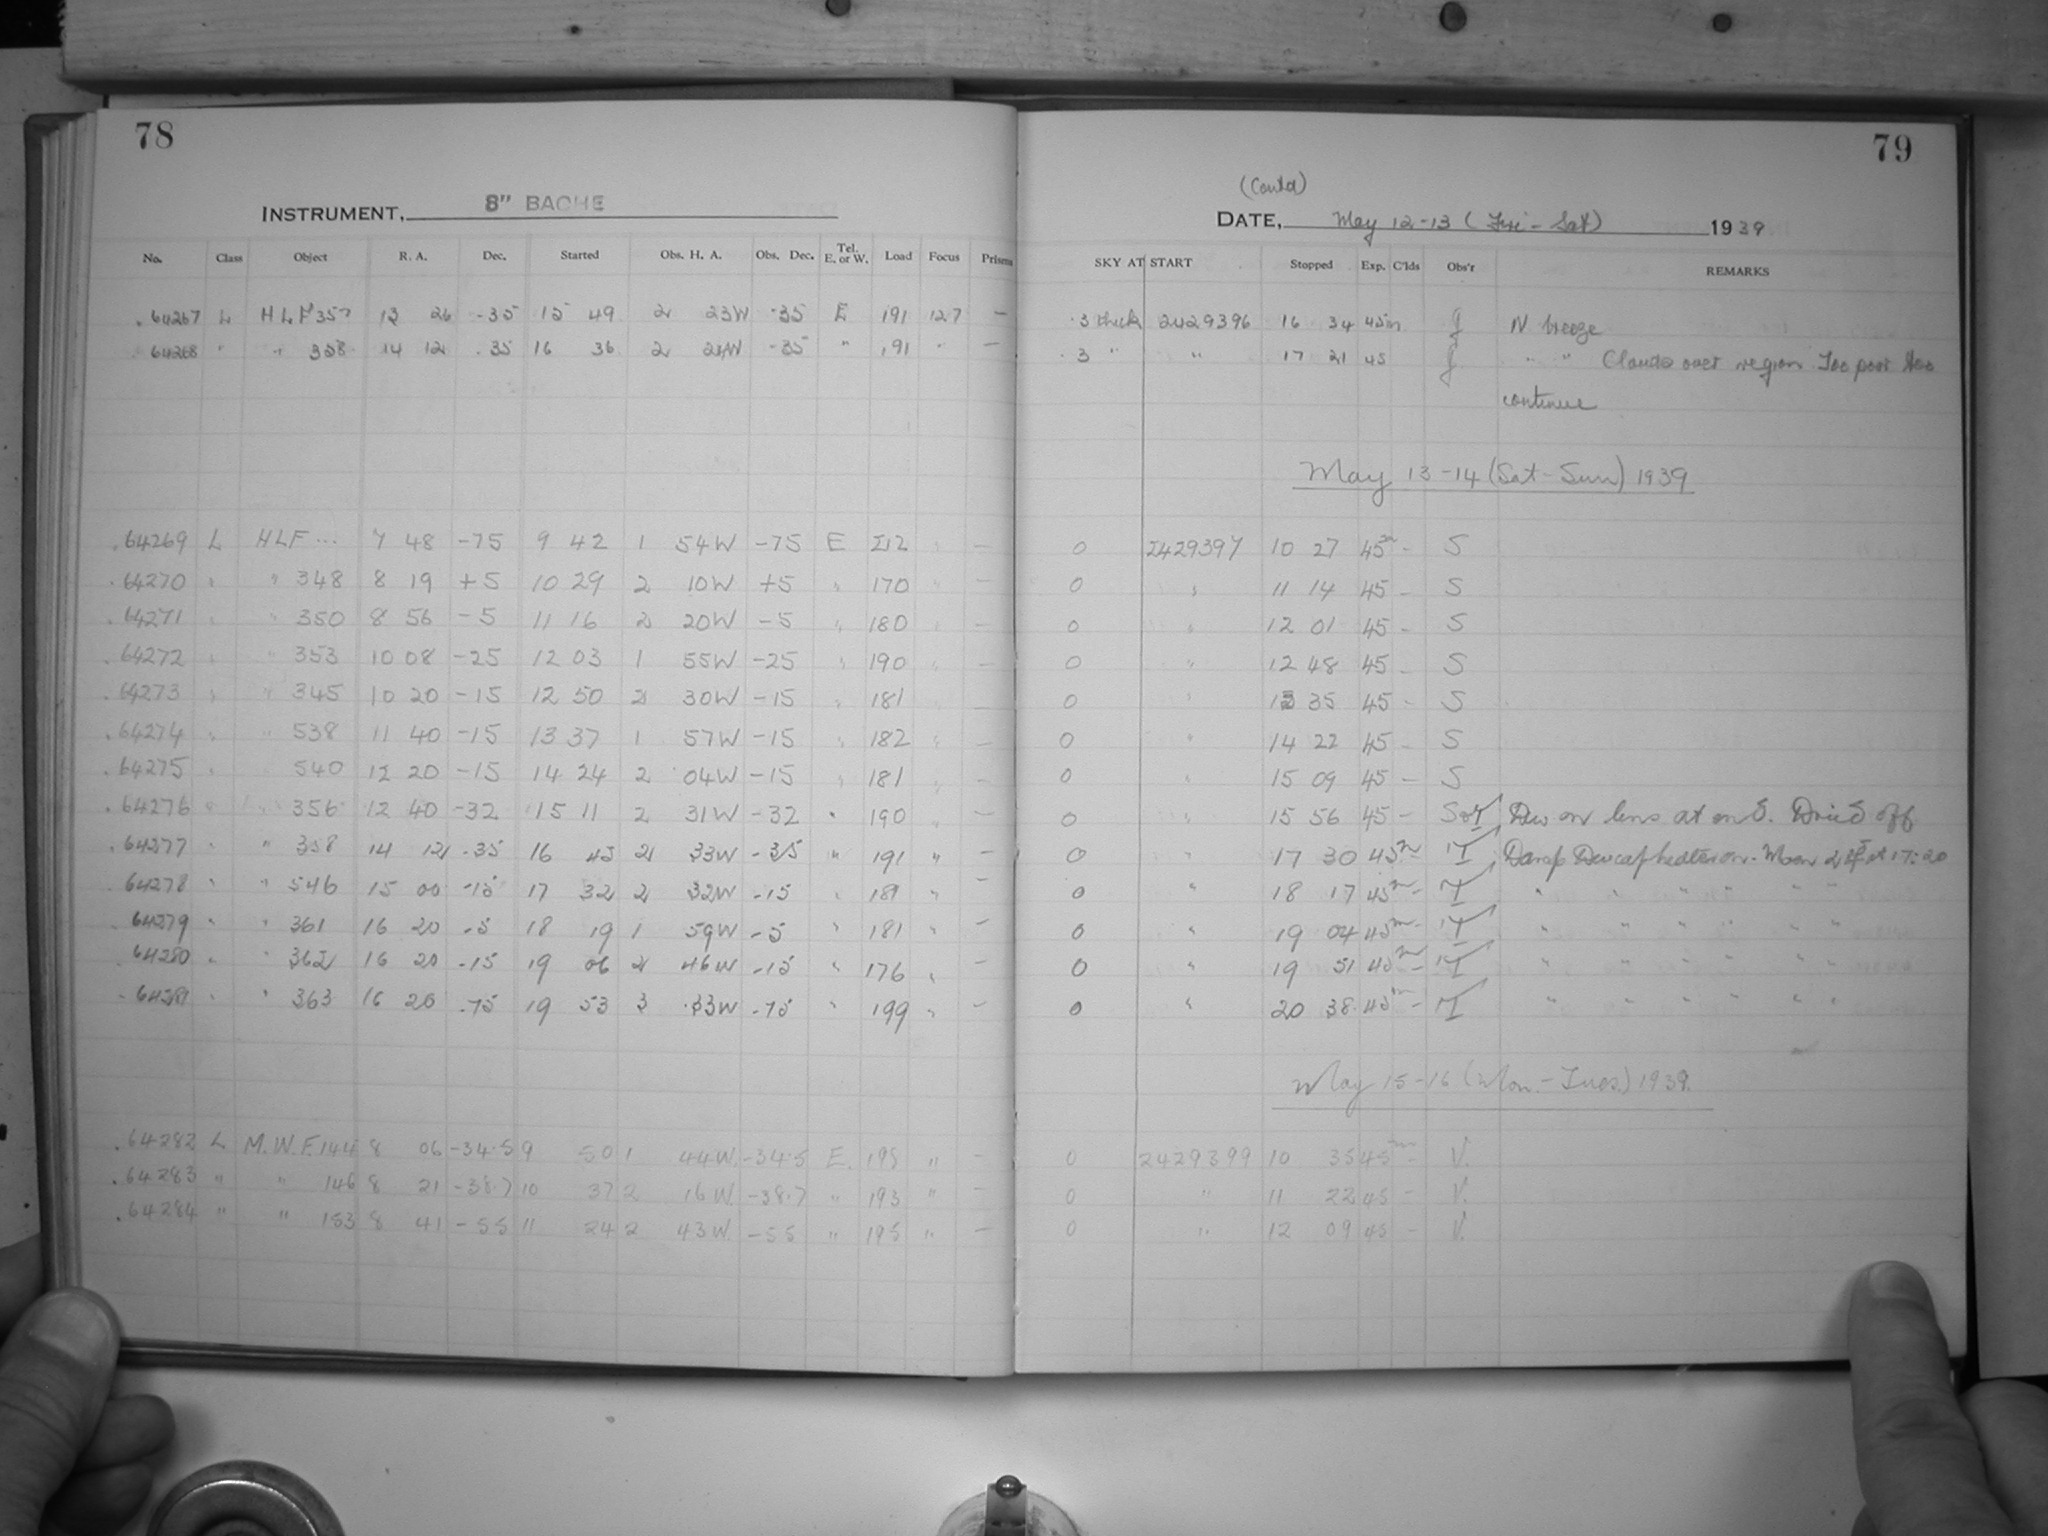 78
INSTRUMENT, 8" BACHE
No. Class Object R. A. Dec. Started Obs. H. A. Obs. Dec. Tel. E. or W. Load Focus Prisms
.64267 L HLF 357 13 26 -35 15 49 2 23W -35 E 191 127 —
64268 " " 358 14 12 -35 16 36 2 24W -35 " 191 " —
.64269 L HLF ... 7 48 -75 9 42 1 54W -75 E 212 " —
.64270 " " 348 8 19 +5 10 29 2 10W +5 " 170 " —
.64271 " " 350 8 56 -5 11 16 2 20W -5 " 180 " —
.64272 " " 353 10 08 -25 12 03 1 55W -25 " 190 " —
.64273 " " 345 10 20 -15 12 50 2 30W -15 " 181 " —
.64274 " " 538 11 40 -15 13 37 1 57W -15 " 182 " —
.64275 " " 540 12 20 -15 14 24 2 04W -15 " 181 " —
.64276 " " 356 12 40 -32 15 11 2 31W -32 " 190 " —
.64277 " " 358 14 12 -35 16 45 2 33W -35 " 191 " —
.64278 " " 546 15 00 -15 17 32 2 32W -15 " 181 " —
.64279 " " 361 16 20 -5 18 19 1 59W -5 " 181 " —
.64280 " " 362 16 20 -15 19 06 2 46W -15 " 176 " —
.64281 " " 363 16 20 -75 19 53 3 33W -75 " 199 " —
.64282 L M.W.F. 144 8 06 -34.5 9 50 1 44W. -34.5 E. 195 " —
.64283 " " 146 8 21 -38.7 10 37 2 16W. -38.7 " 193 " —
.64284 " " 153 8 41 -55 11 24 2 43W. -55 " 195 " —
79
(Contd)
DATE, May 12-13 (Fri - Sat) 1939
SKY AT START Stopped Exp. C'lds Obs'r REMARKS
.3 thick 2429396 16 34 45m g N breeze
.3 " " 17 21 45 g " " Clouds over region. Too poor to
continue
May 13-14 (Sat-Sun) 1939
0 2429397 10 27 45m - S
0 " 11 14 45 - S
0 " 12 01 45 - S
0 " 12 48 45 - S
0 " 13 35 45 - S
0 " 14 22 45 - S
0 " 15 09 45 - S
0 " 15 56 45 - Dew on lens at end. Dried off
0 " 17 30 45m - Damp Dewcap heater on. Moon at 17:20
0 " 18 17 45m - " " " " " "
0 " 19 04 45m - " " " " " "
0 " 19 51 45m - " " " " " "
0 " 20 38 45m - " " " " " "
May 15-16 (Mon.-Tues.) 1939.
0 2429399 10 35 45m - V.
0 " 11 22 45 - V.
0 " 12 09 45 - V.